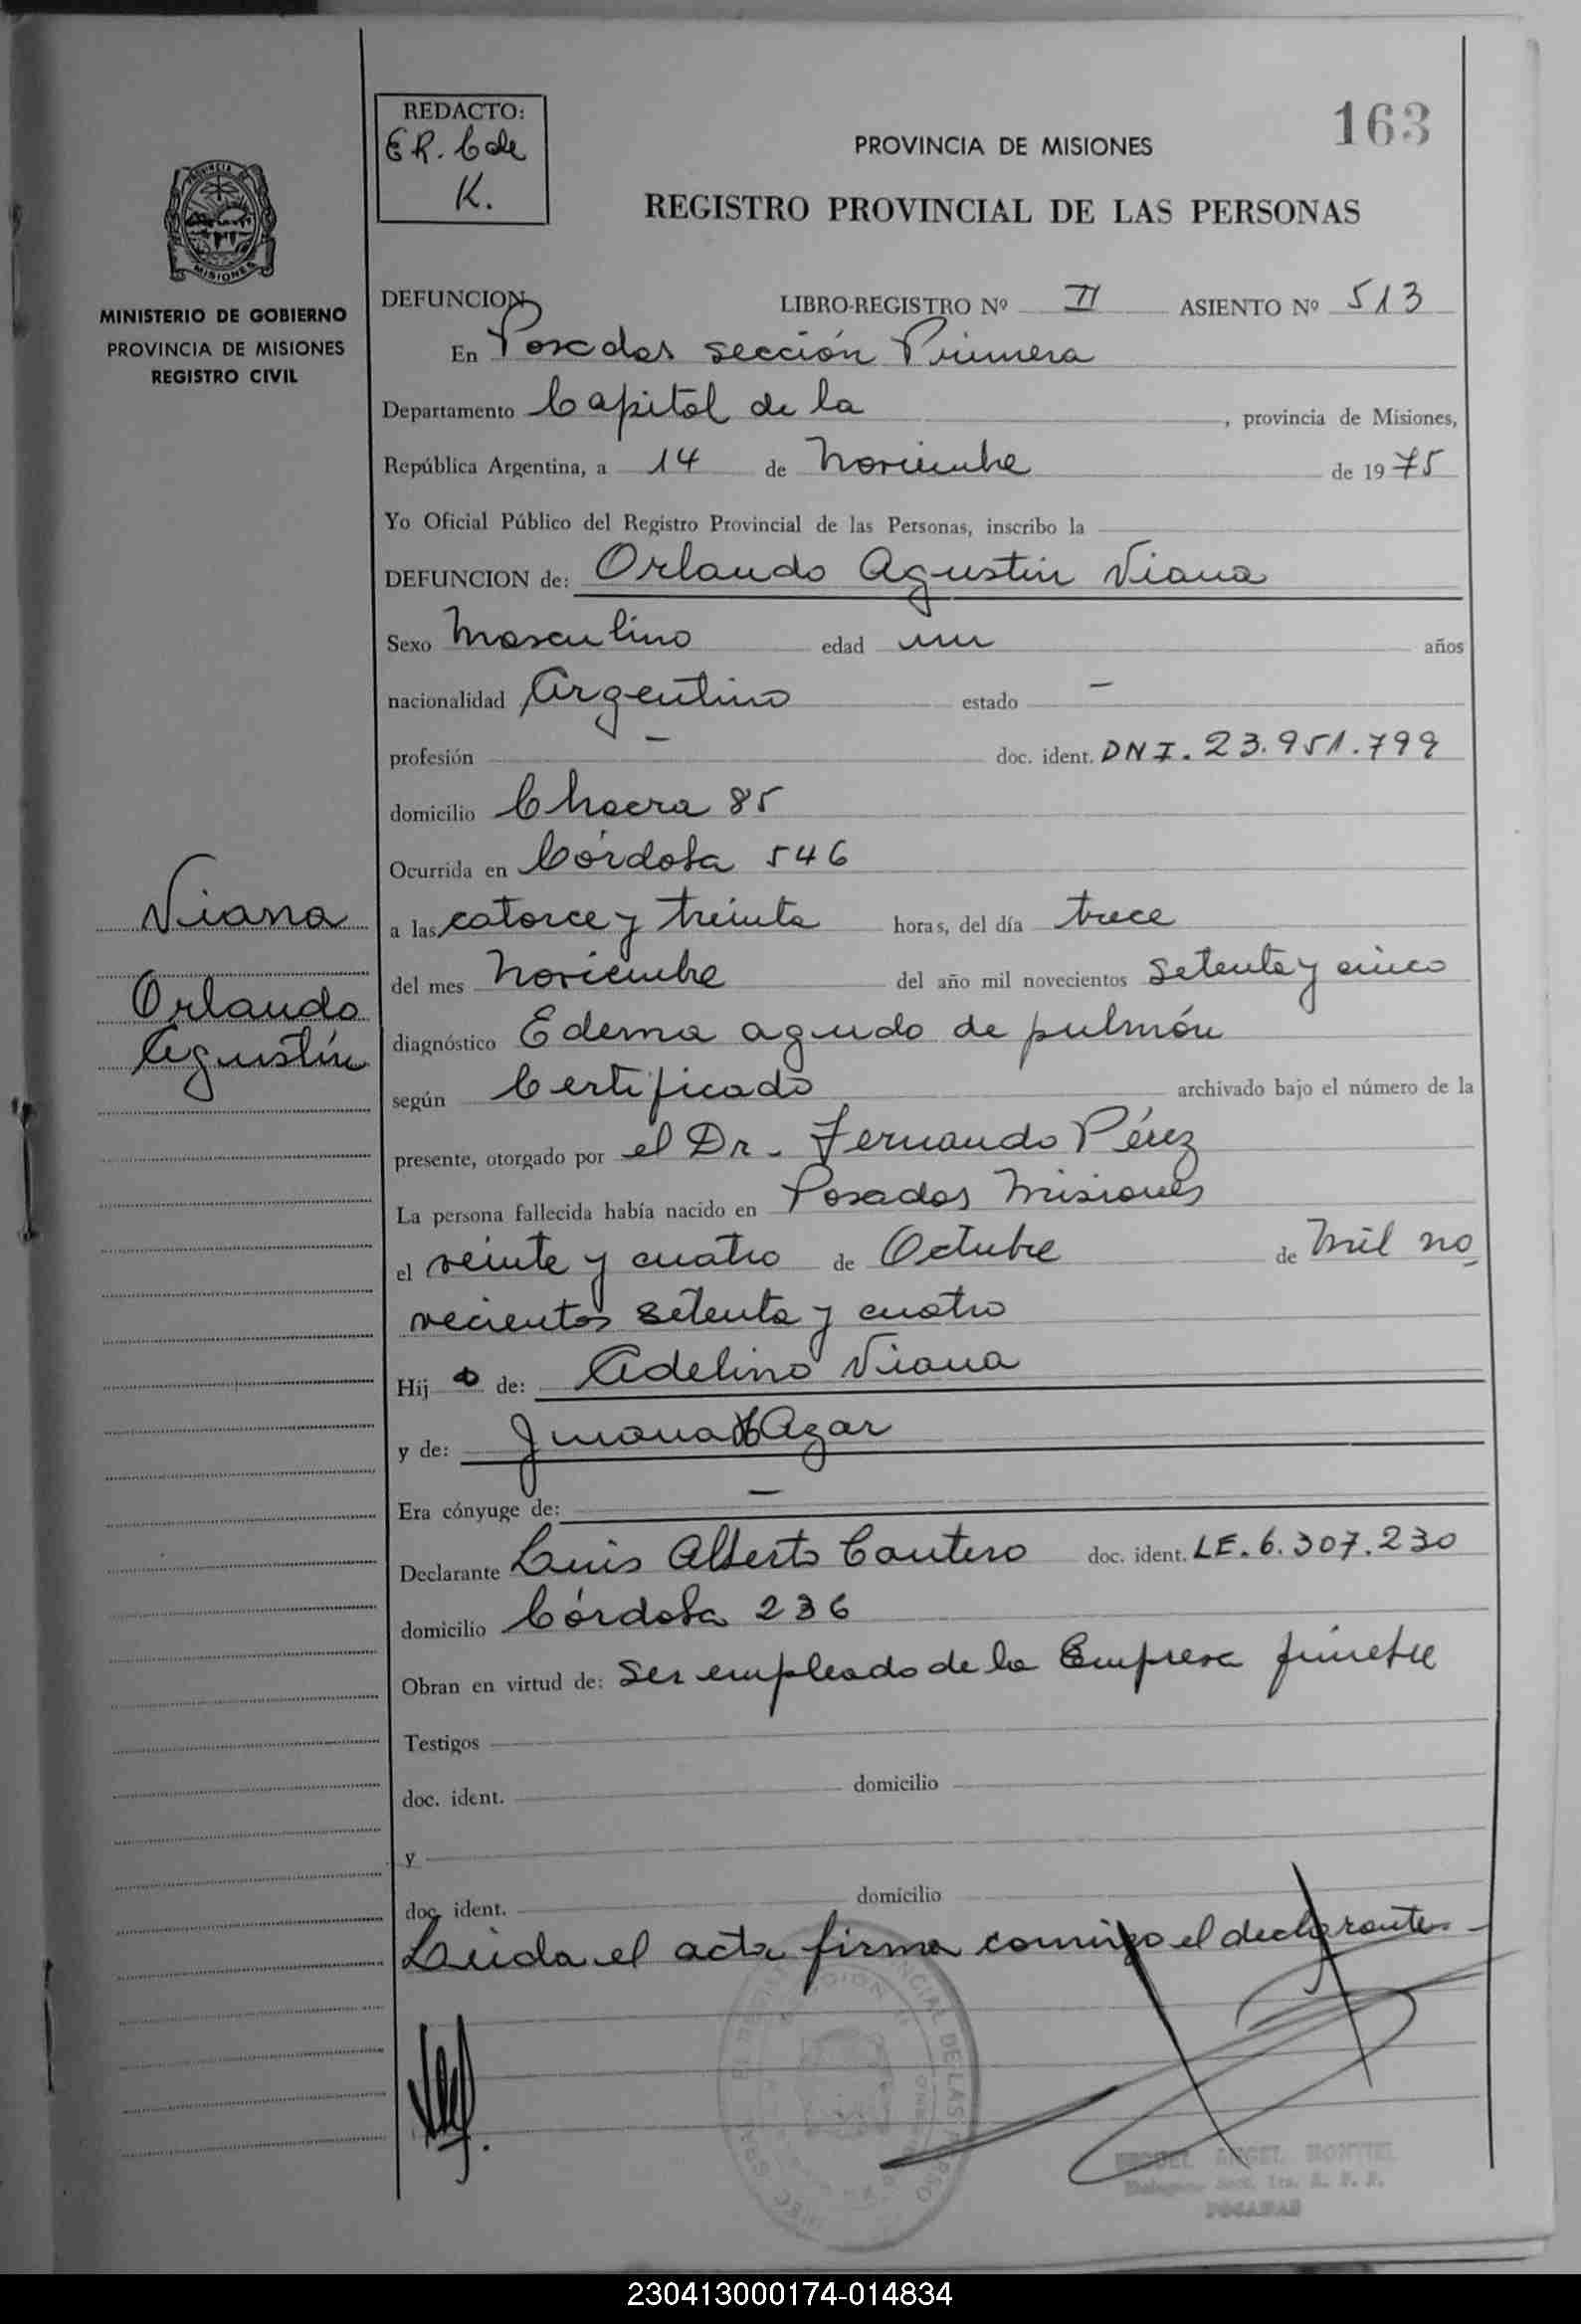 163
REDACTO:
E R. C de
K.
PROVINCIA DE MISIONES
REGISTRO PROVINCIAL DE LAS PERSONAS
MINISTERIO DE GOBIERNO
PROVINCIA DE MISIONES
REGISTRO CIVIL
DEFUNCION LIBRO-REGISTRO Nº II ASIENTO Nº 513
En Posadas sección Primera
Departamento Capital de la , provincia de Misiones,
República Argentina, a 14 de Noviembre de 1975
Yo Oficial Público del Registro Provincial de las Personas, inscribo la
DEFUNCION de: Orlando Agustin Viana
Sexo Masculino edad un años
nacionalidad Argentino estado –
profesión – doc. ident. DNI. 23.951.799
domicilio Chacra 85
Ocurrida en Córdoba 546
Viana
Orlando
Agustín
a las catorce y treinta horas, del día trece
del mes Noviembre del año mil novecientos setenta y cinco
diagnóstico Edema agudo de pulmón
según Certificado archivado bajo el número de la
presente, otorgado por el Dr. Fernando Pérez
La persona fallecida había nacido en Posadas Misiones
el veinte y cuatro de Octubre de Mil no
vecientos setenta y cuatro
Hijo de: Adelino Viana
y de: Juana Azar
Era cónyuge de: –
Declarante Luis Alberto Cantero doc. ident. LE. 6.307.230
domicilio Córdoba 236
Obran en virtud de: ser empleado de la Empresa fúnebre
Testigos
doc. ident. domicilio
y
doc. ident. domicilio
Leida el acta firma conmigo el declarante.-
MIGUEL ANGEL MONTIEL
POSADAS
230413000174-014834